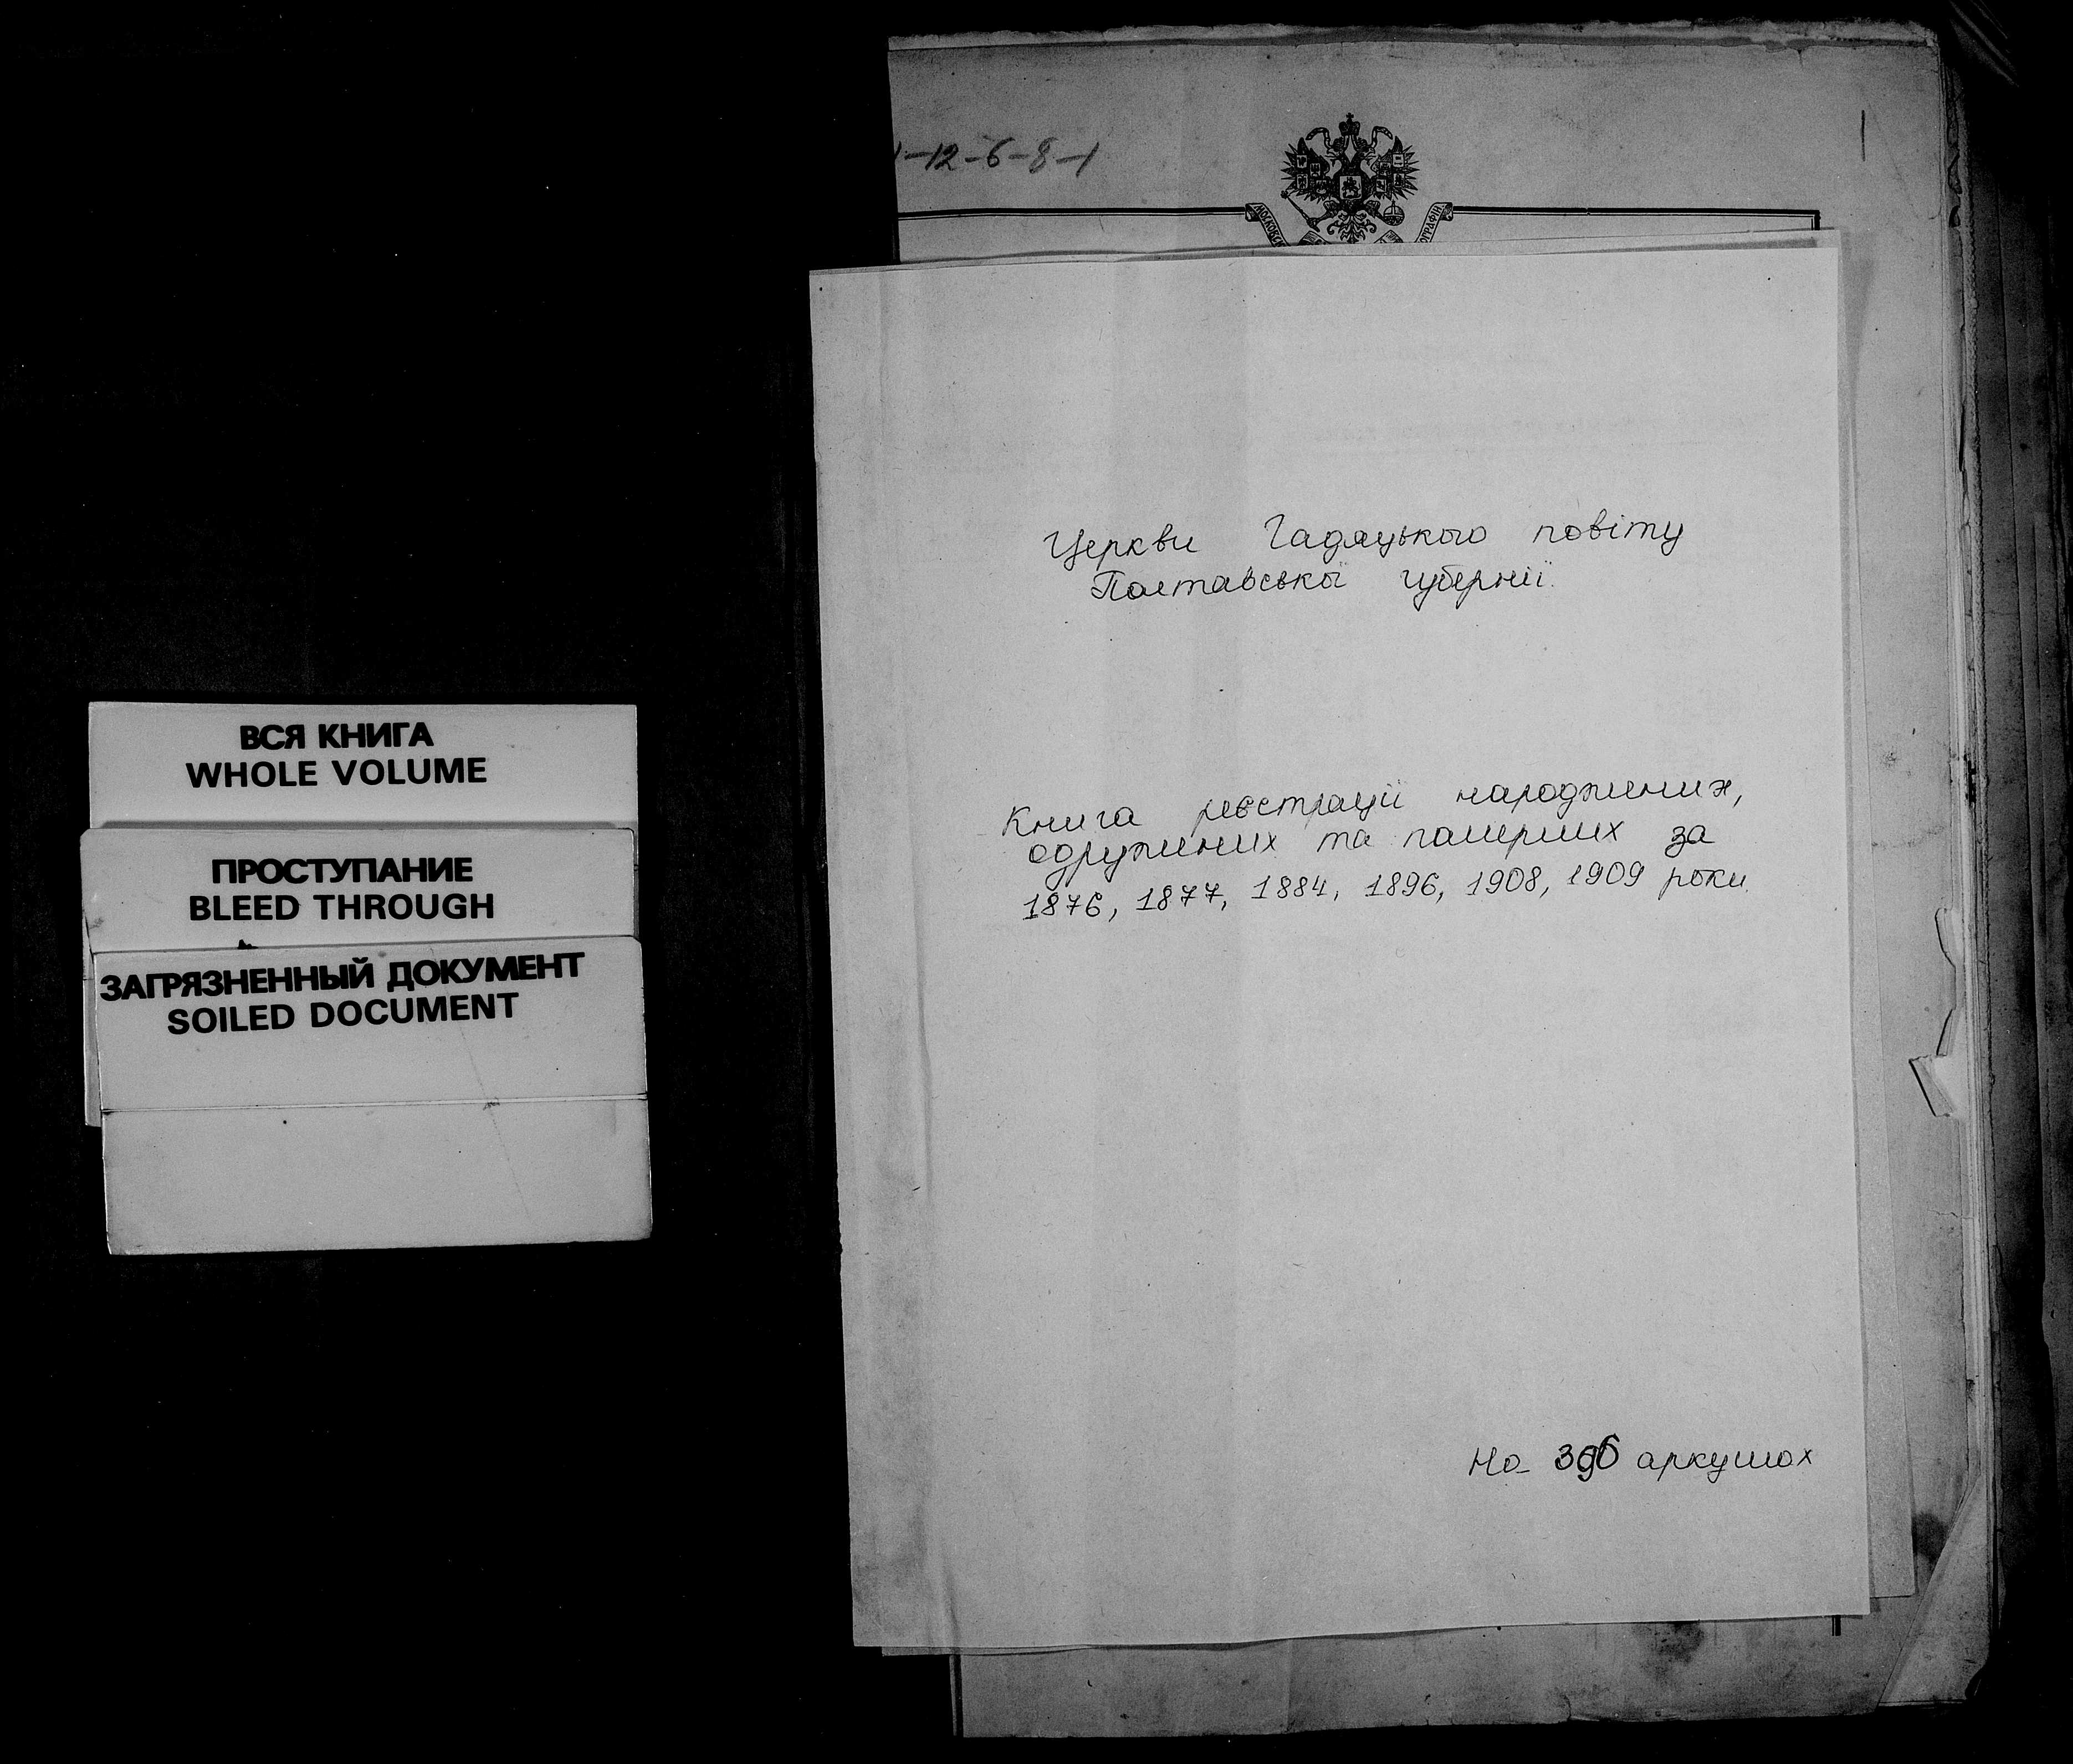 ВСЯ КНИГА
WHOLE VOLUME
ПРОСТУПАНИЕ
BLEED THROUGH
ЗАГРЯЗНЕННЫЙ ДОКУМЕНТ
SOILED DOCUMENT
-12-6-8-1
Церкви Гадяцького повіту
Полтавської губернії.
Книга реєстрації народжених,
одружених та померлих за
1876, 1877, 1884, 1896, 1908, 1909 роки.
На 396 аркушах